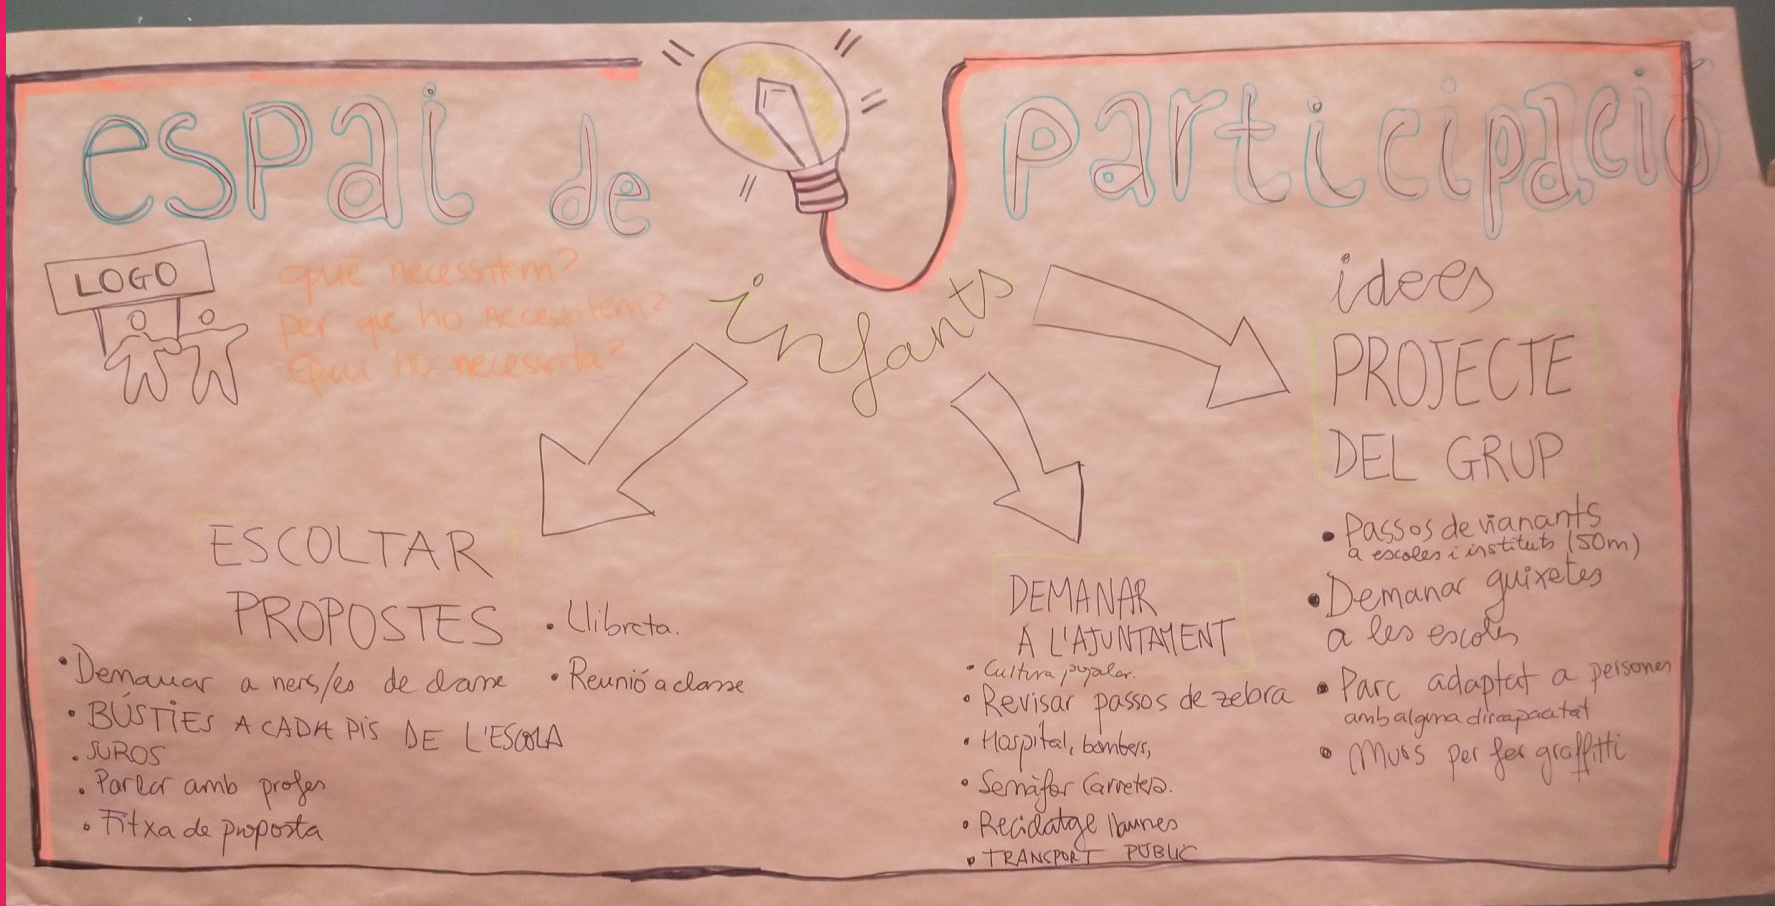 espai de participació
LOGO
què necessitem?
per què ho necessitem?
Qui ho necessita?
infants
ESCOLTAR
PROPOSTES
• Demanar a nens/es de classe
• BÚSTIES A CADA PIS DE L'ESCOLA
• SUROS
• Parlar amb profes
• Fitxa de proposta
• Llibreta.
• Reunió a classe
DEMANAR
A L'AJUNTAMENT
• Cultura popular.
• Revisar passos de zebra
• Hospital, bombers,
• Semàfor Carretera.
• Reciclatge llaunes
• TRANSPORT PÚBLIC
idees
PROJECTE
DEL GRUP
• Passos de vianants
a escoles i instituts (50m)
• Demanar guixetes
a les escoles
• Parc adaptat a persones
amb alguna discapacitat
• Murs per fer graffitti